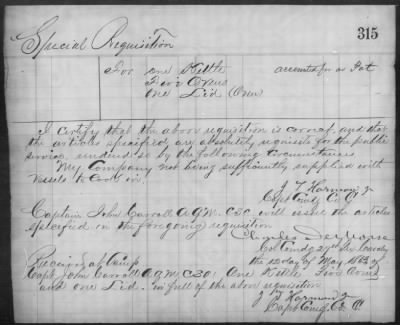 315
Special Requisition
For one Kettle accounted for as Pot
Five Ovens
One Lid Oven
I certify that the above requisition is correct, and that
the articles specified are absolutely requisite for the public
service, rendered so by the following circumstances
My Company not being sufficiently supplied with
vessels to cook in.
J. T. Harmon Jr
Capt Comdg Co. A
Captain John Carroll A.Q.M. C.S.A. will issue the articles
specified in the foregoing requisition
Charles
Col Comdg 2nd
the 12 day of May 1863 of
Received at Camp
Capt. John Carroll A.Q.M. C.S.A. One Kettle Five Ovens
and one Lid. in full of the above requisition
J. T. Harmon Jr
Capt Comdg Co. A.